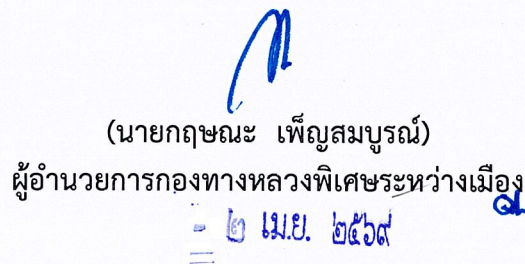 (นายกฤษณะ เพ็ญสมบูรณ์)
ผู้อำนวยการกองทางหลวงพิเศษระหว่างเมือง
- ๒ เม.ย. ๒๕๖๙